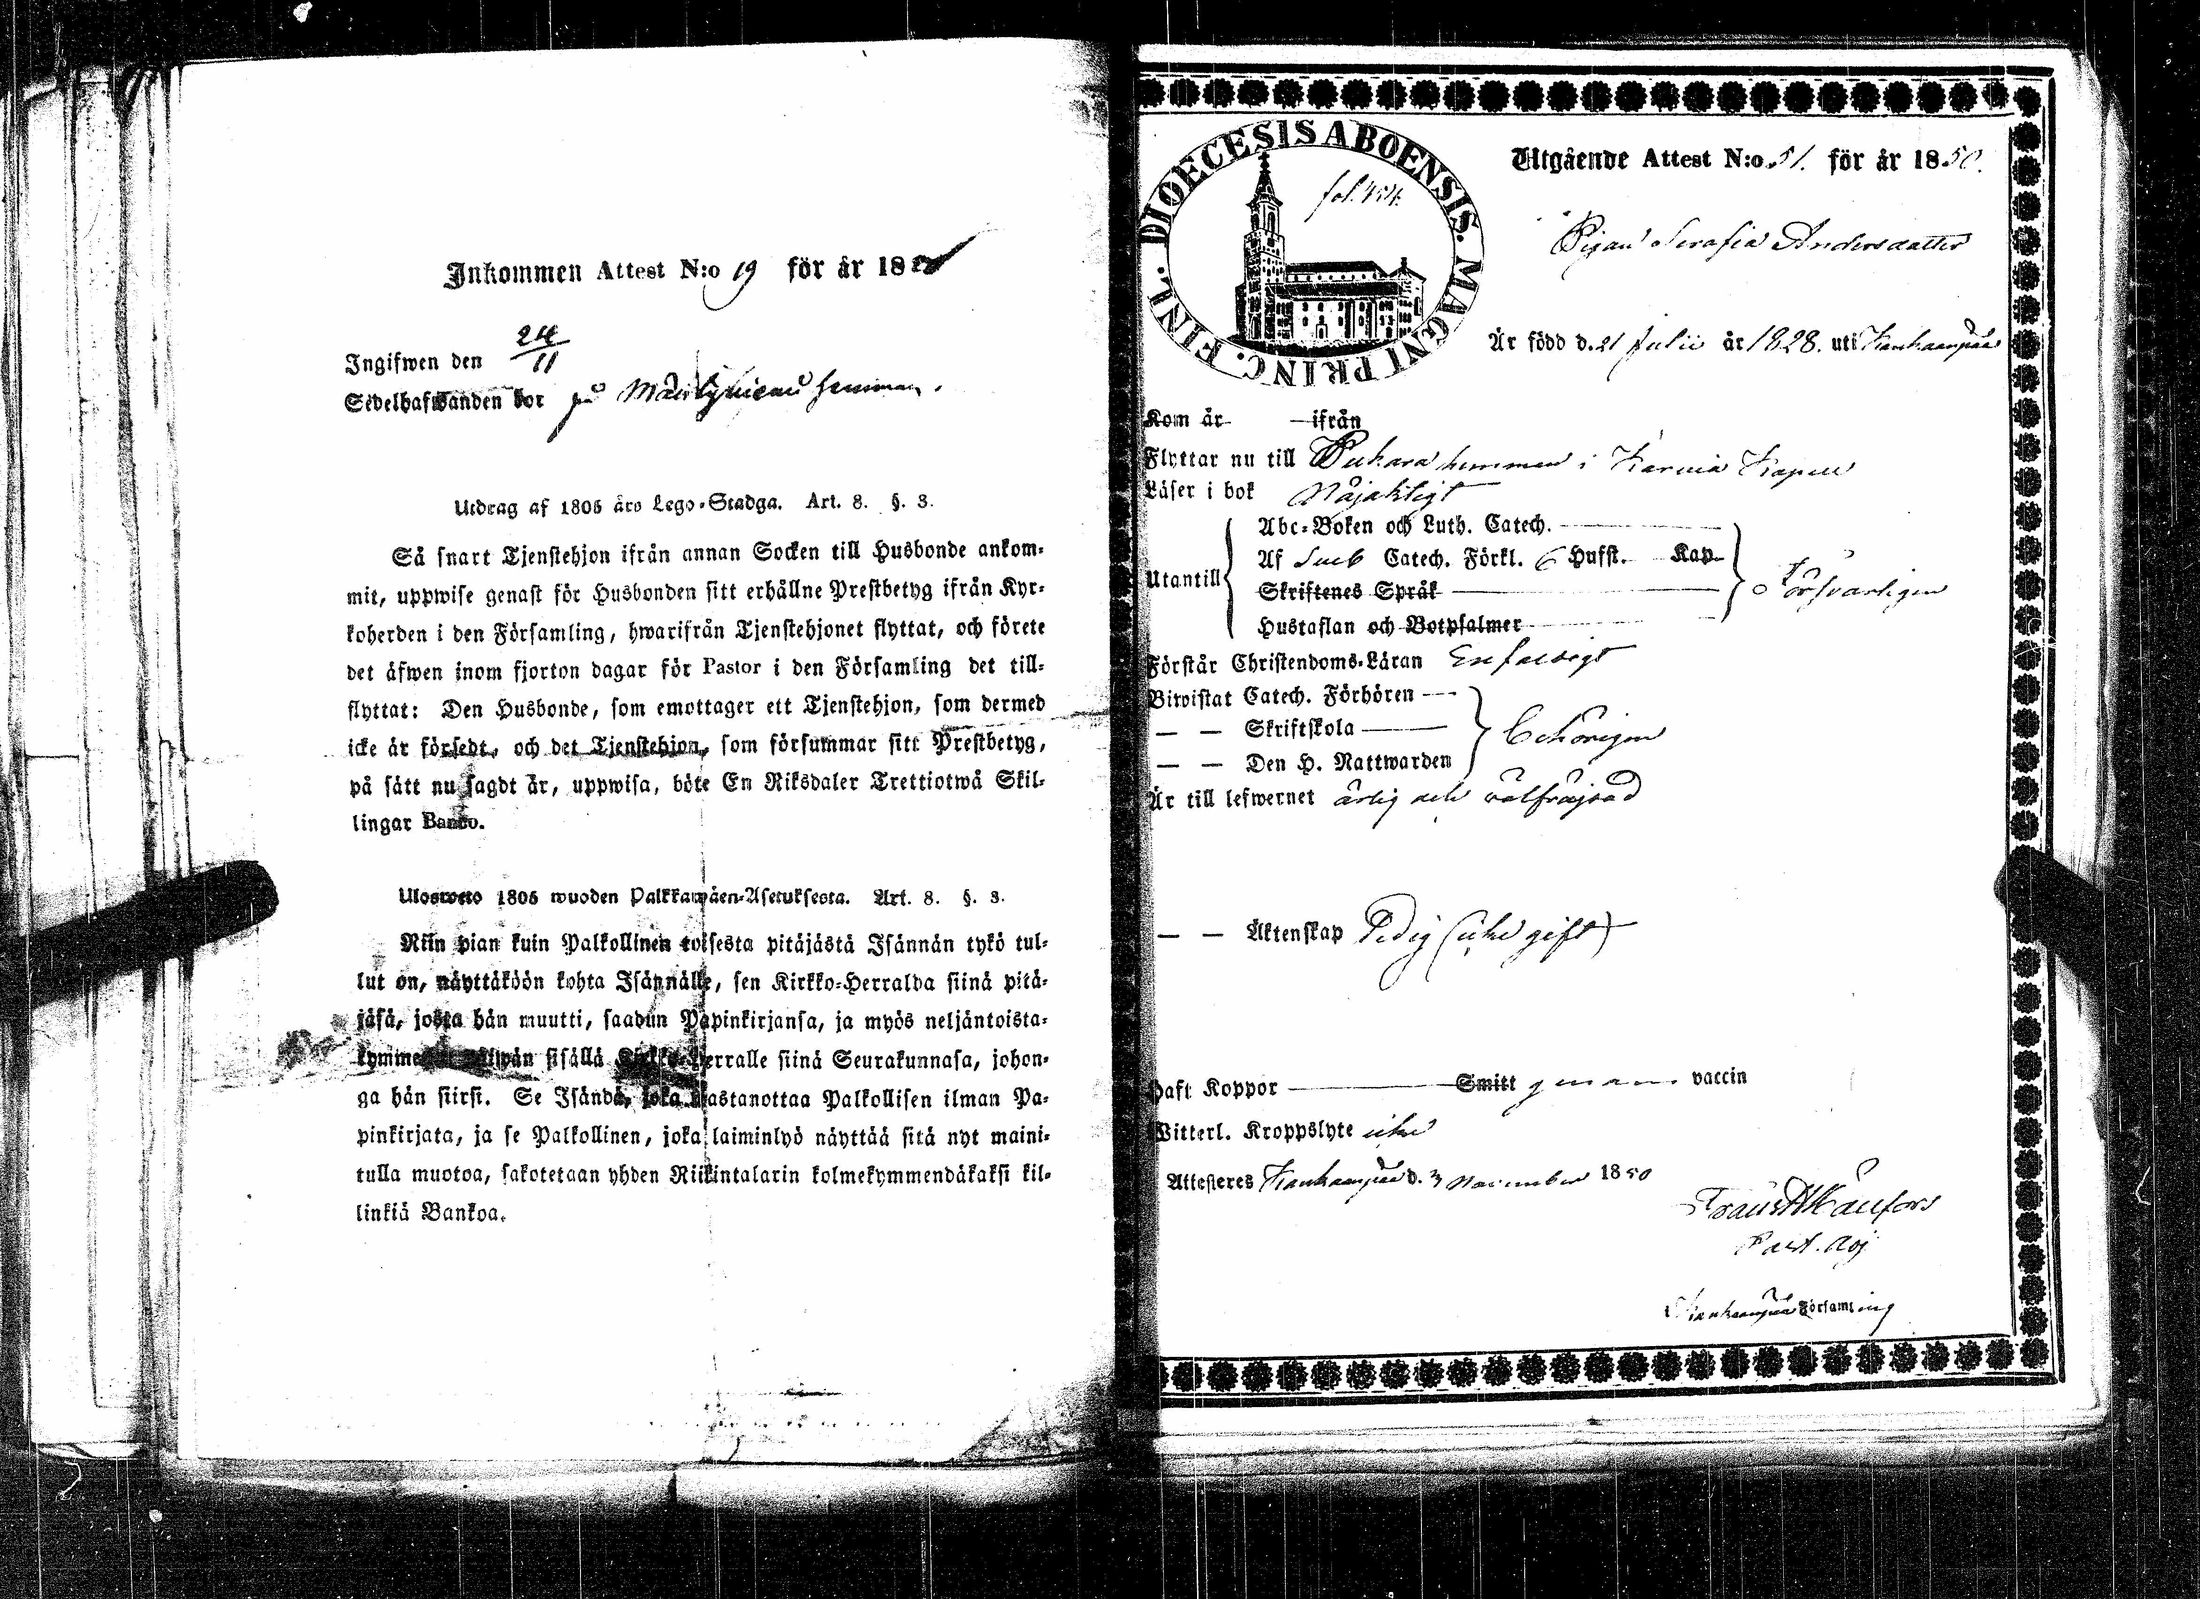 Inkommen Attest N:o 19 för år 18
Ingifwen den 24/11
Sedelhafwanden bor på hemman.
Utdrag af 1805 års Lego-Stadga. Art. 8. §. 3.
Så snart Tjenstehjon ifrån annan Socken till Husbonde ankom-
mit, uppwise genast för Husbonden sitt erhållne Prestbetyg ifrån Kyr-
koherden i den Församling, hwarifrån Tjenstehjonet flyttat, och förete
det äfwen inom fjorton dagar för Pastor i den Församling det till-
flyttat: Den Husbonde, som emottager ett Tjenstehjon, som dermed
icke är försedt, och det Tjenstehjon, som försummar sitt Prestbetyg,
på sätt nu sagdt är, uppwisa, böte En Riksdaler Trettiotwå Skil-
lingar Banco.
Uloswetto 1805 wuoden Palkkawäen-Asetuksesta. Art. 8. §. 3.
Niin pian kuin Palkollinen toisesta pitäjästä Isännän tykö tul-
lut on, näyttäköön kohta Isännälle, sen Kirkko-Herralda siinä pitä-
jäsä, josta hän muutti, saadun Papinkirjansa, ja myös neljäntoista-
kymmenen päiwän sisällä Kirkko-Herralle siinä Seurakunnasa, johon-
ga hän siirsi. Se Isändä, joka wastanottaa Palkollisen ilman Pa-
pinkirjata, ja se Palkollinen, joka laiminlyö näyttää sitä nyt maini-
tulla muotoa, sakotetaan yhden Riikintalarin kolmekymmendäkaksi kil-
linkiä Bankoa.
DIOECESIS ABOENSIS. MAGNI PRINC. FINL.
fol. 454.
Utgående Attest N:o 51. för år 1850.
Pigan Serafia Andersdotter
Är född d. 21 Julii år 1828. uti Kankaanpää
Kom år ifrån
Flyttar nu till Pukara hemman i Karvia Kapell
Läser i bok Nöjaktigt
Abc-Boken och Luth. Catech.
Utantill Af Sveb Catech. Förkl. 6 Hufst. Kap
Skriftenes Språk
Försvarligen
Hustaflan och Botpsalmer
Förstår Christendoms-Läran Enfaldigt
Biwistat Catech. Förhören
— — Skriftskola
Behörigen
— — Den H. Nattwarden
Är till lefwernet ärlig och välfräjdad
— — Äktenskap Ledig (icke gift)
Haft Koppor Smitt genom vaccin
Witterl. Kroppslyte icke
Attesteres Kankaanpää d. 3 November 1850
Past. Adj
i Kankaanpää Församling